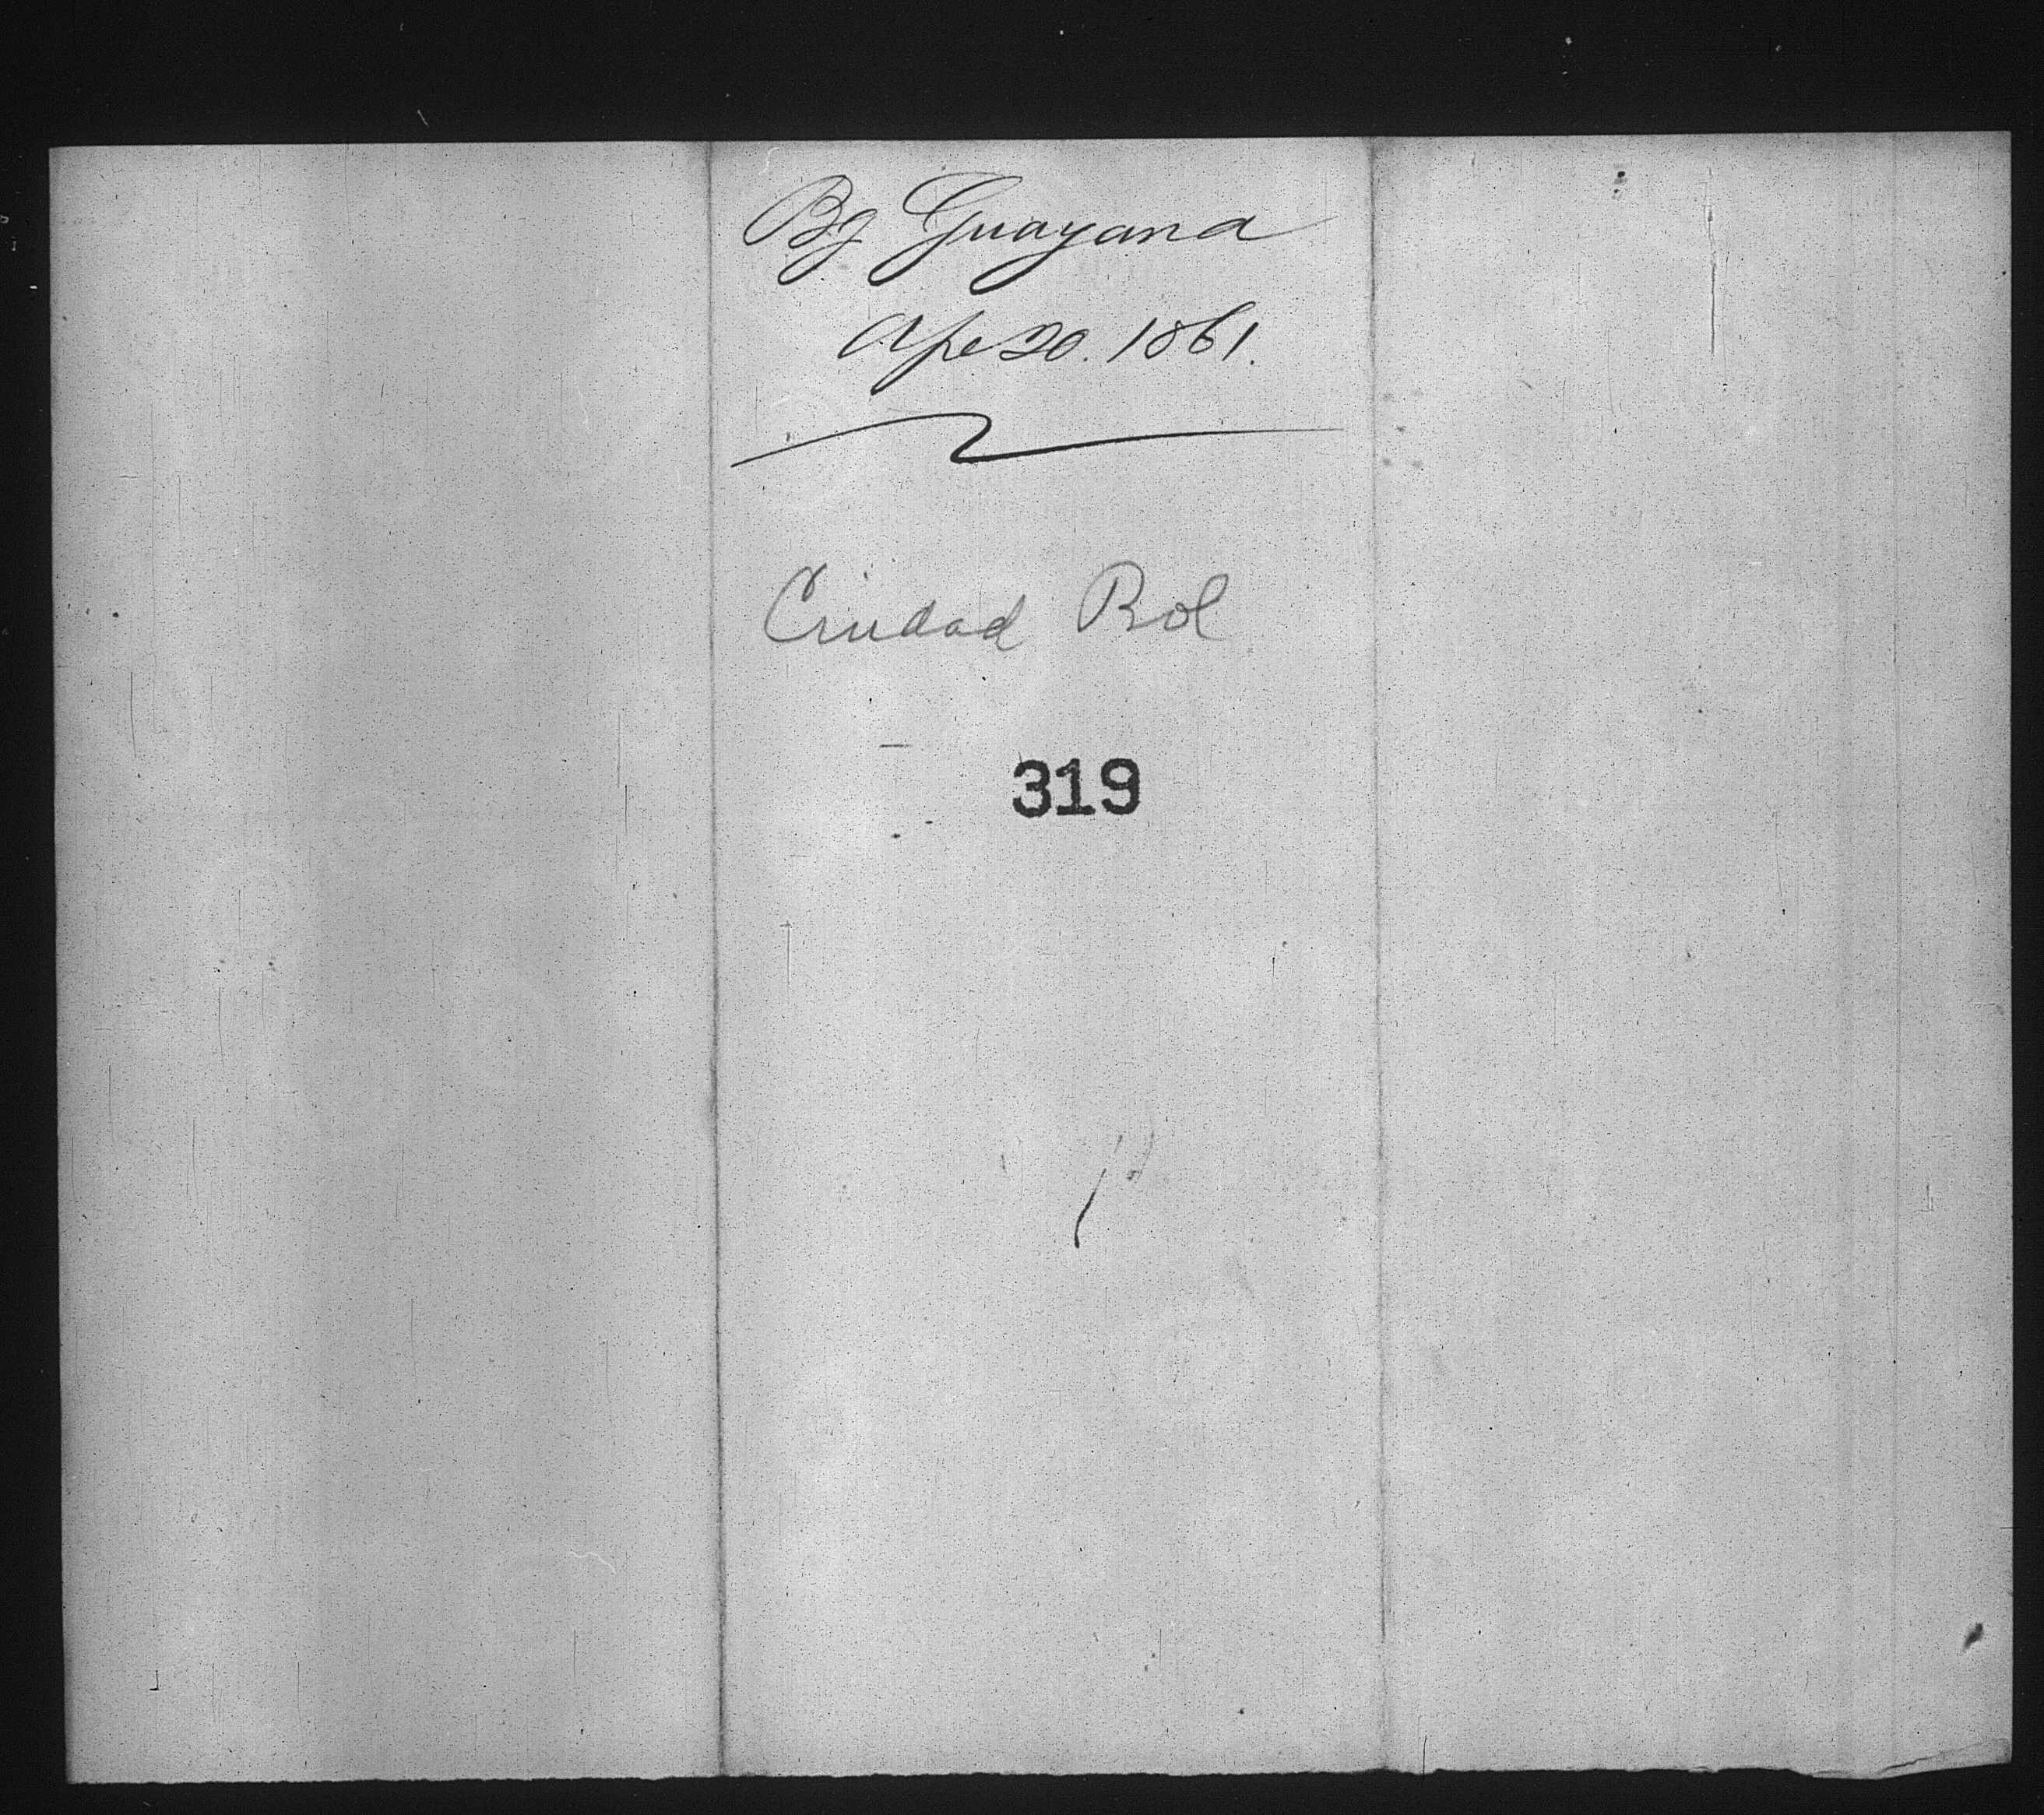 Bg Guayana
Apr 20. 1861.
Ciudad Bol
319